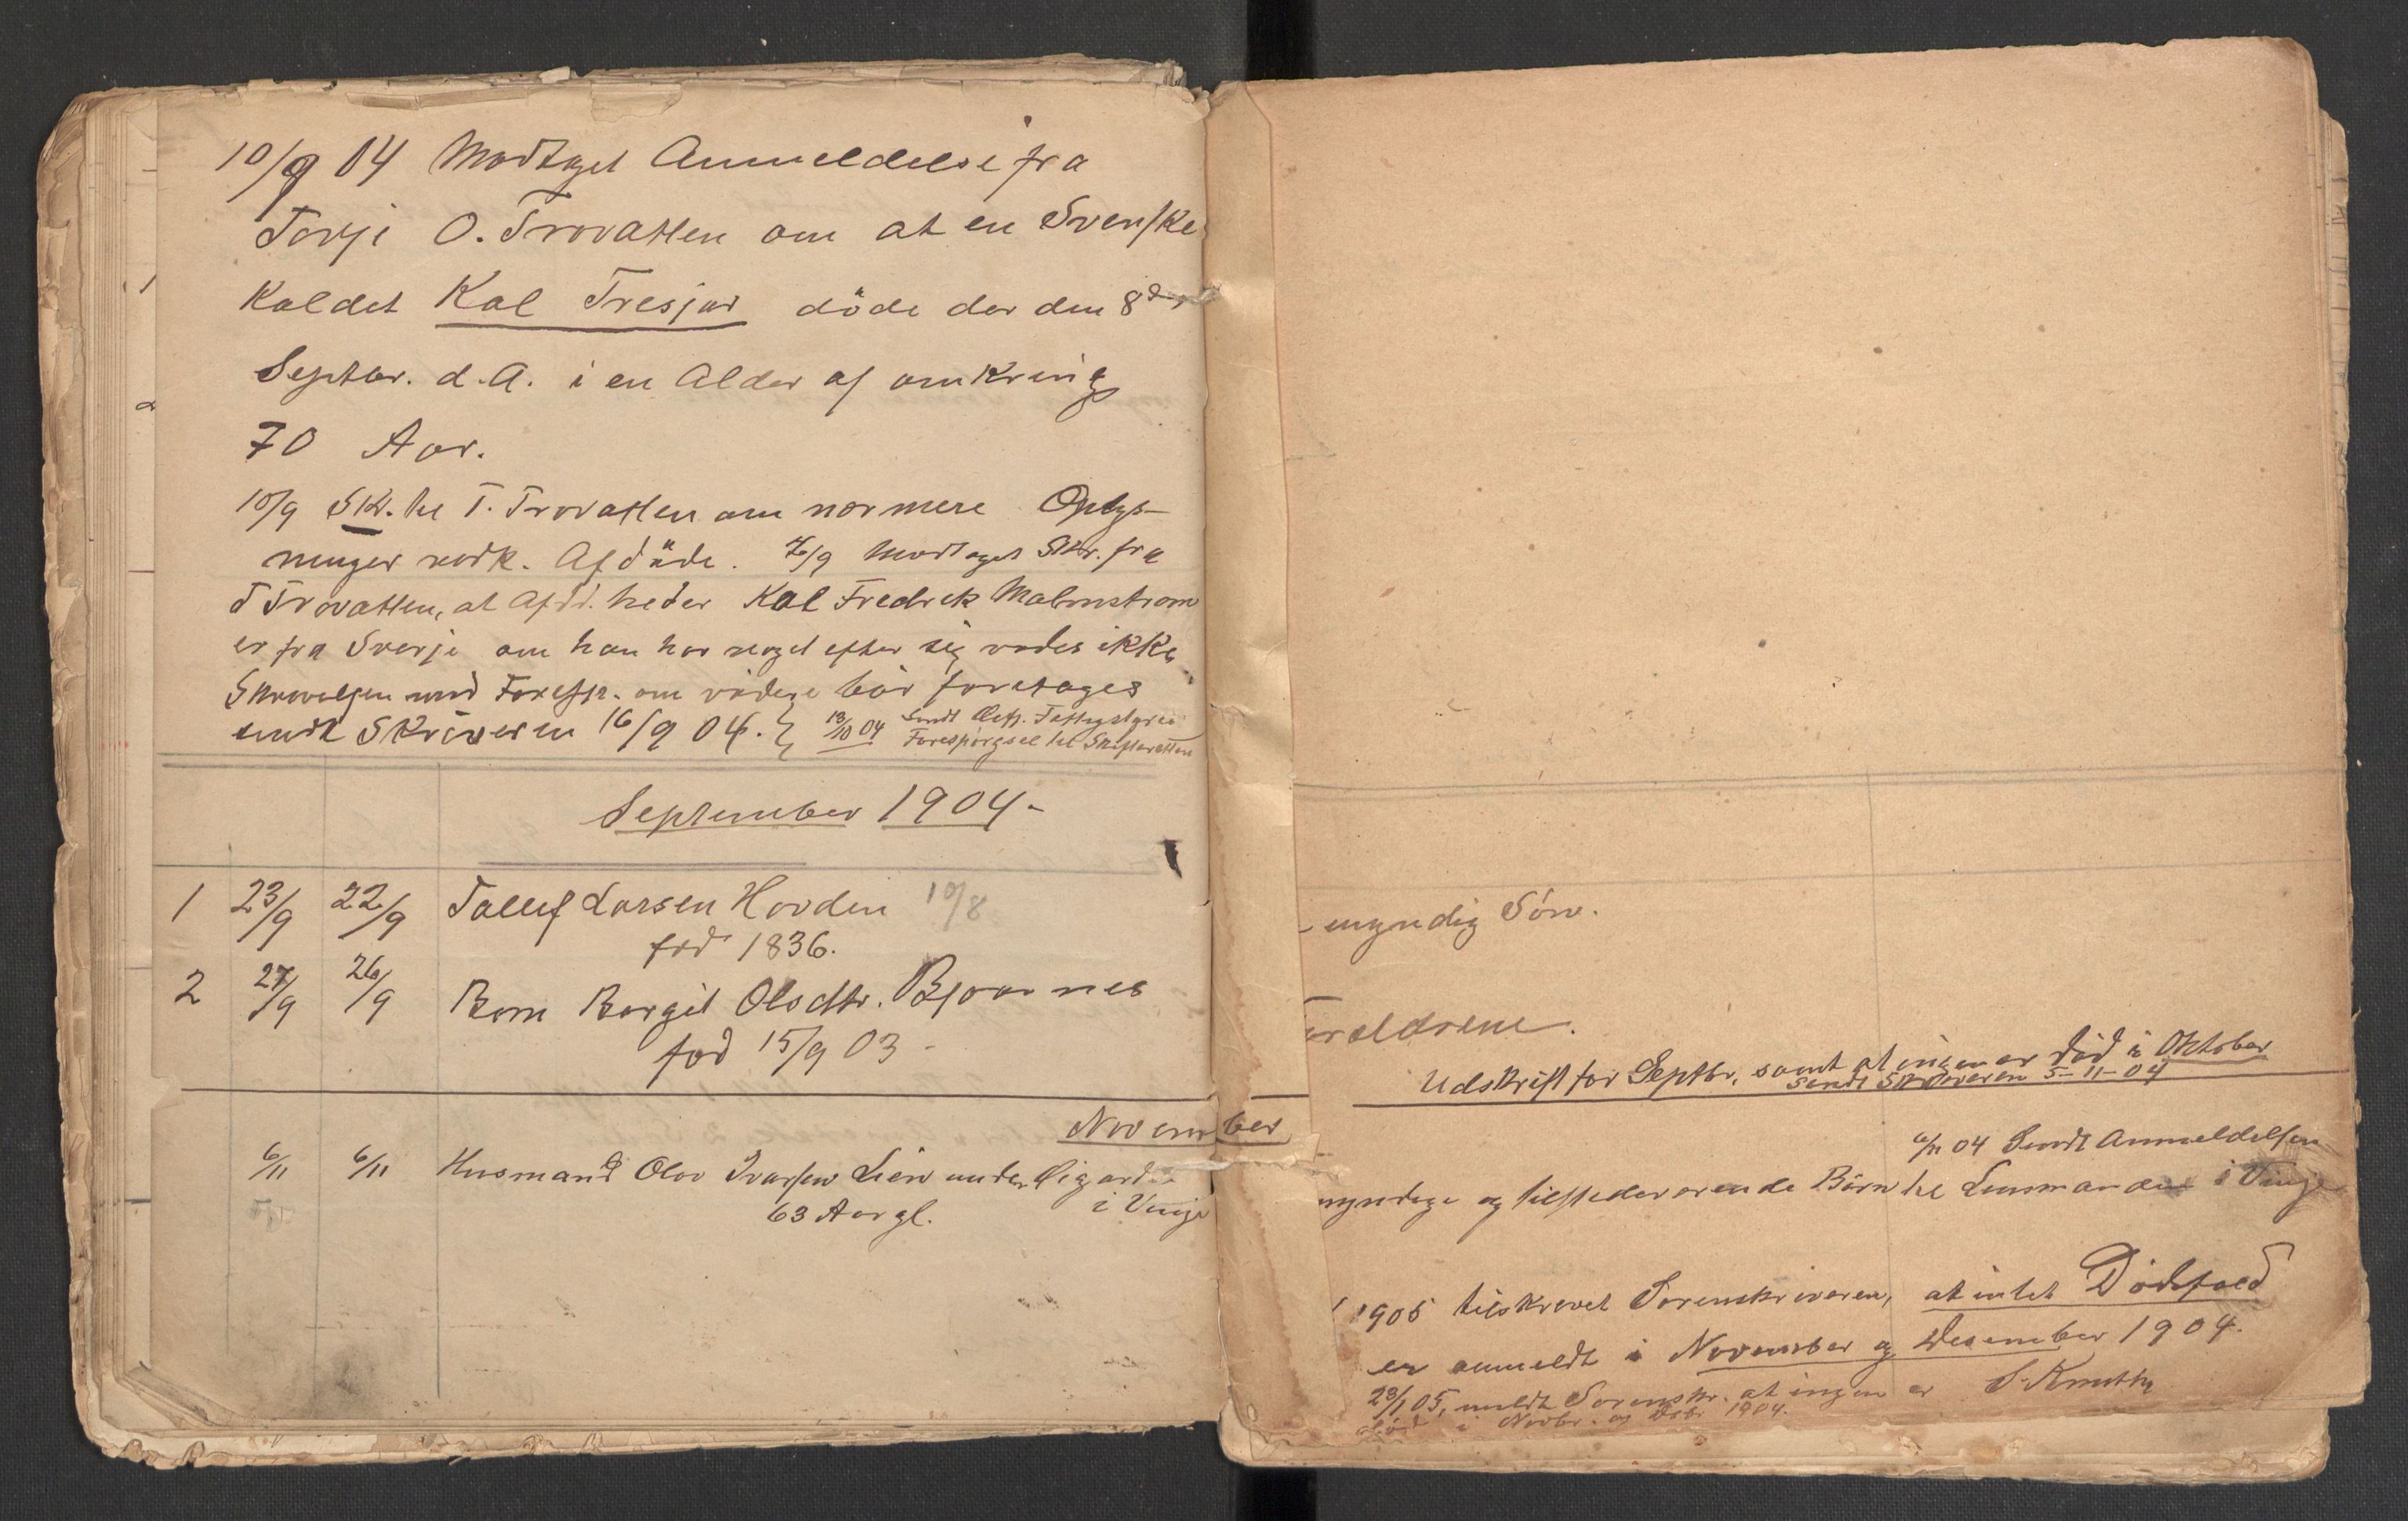 10/9 04 Modtaget Anmeldelse fra
Torje O. Trovatten om at en Svenske
kaldet Kal Tresjar döde der den 8de
Septbr. d. A. i en Alder af omkring
70 Aar.
10/9 Skr. til T. Trovatten om nærmere Oplys-
ninger vedk. Afdöde. /9 Modtaget Skr. fra
T Trovatten, at Afdö. heder Kal Fredrek Malmstrøm
er fra Sverje om han har noget efter sig vides ikke
Skrivelsen med Forespr. om videre bör foretages
sendt Skriveren 16/9 04. } 13/10 04 Sendt Fattigstyre
Forespörgsel til Skifteretten
September 1904-
1 23/9 22/9 Tallef Larsen Hovden 10/8
fød 1836.
2 27/9 26/9 Barn Bergit Olsdtr. Bjaannes
fød 15/9 03 -
November
6/11 6/11 Husmand Olav Ivarsen Lien under Ligard
63 Aar gl. i Vinje
myndig Sön.
oreldrene.
Udskrift for Septbr. samt at ingen er död i Oktober
sendt Skriveren 5-11-04
6/11 04 Sendt Anmeldelsen
myndige og tilstedeværende Börn til Lensmanden i Vinje
1905 tilskrevet Sorenskriveren, at intet Dödsfald
er anmeldt i November og Desember 1904.
23/1 05, meldt Sorenskr. at ingen er S. Knutt
död i Novbr. og Dsbr 1904.